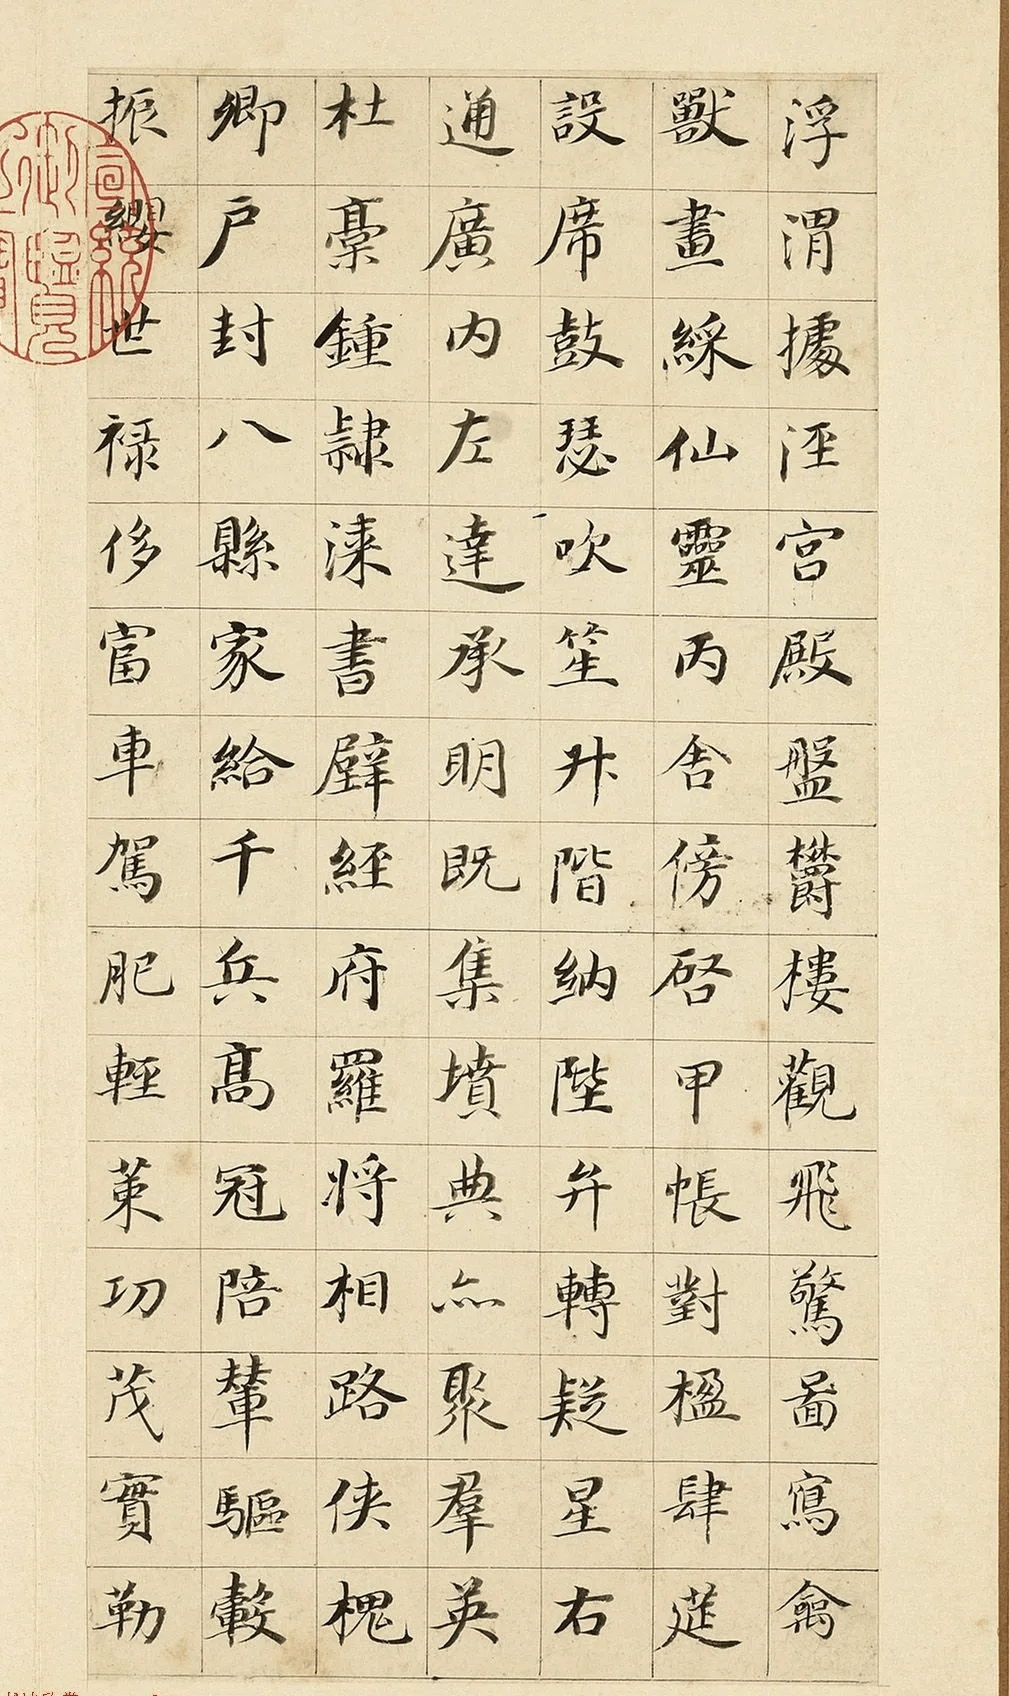 浮渭據涇宮殿盤欝樓觀飛驚啚寫禽
獸畫綵仙靈丙舍傍啓甲帳對楹肆筵
設席鼓瑟吹笙升階納陛弁轉疑星右
通廣內左達承明既集墳典亦聚羣英
杜稾鍾隷漆書壁經府羅將相路俠槐
卿戶封八縣家給千兵高冠陪輦驅轂
振纓世祿侈富車駕肥輕策功茂實勒
宣統御覽之寶